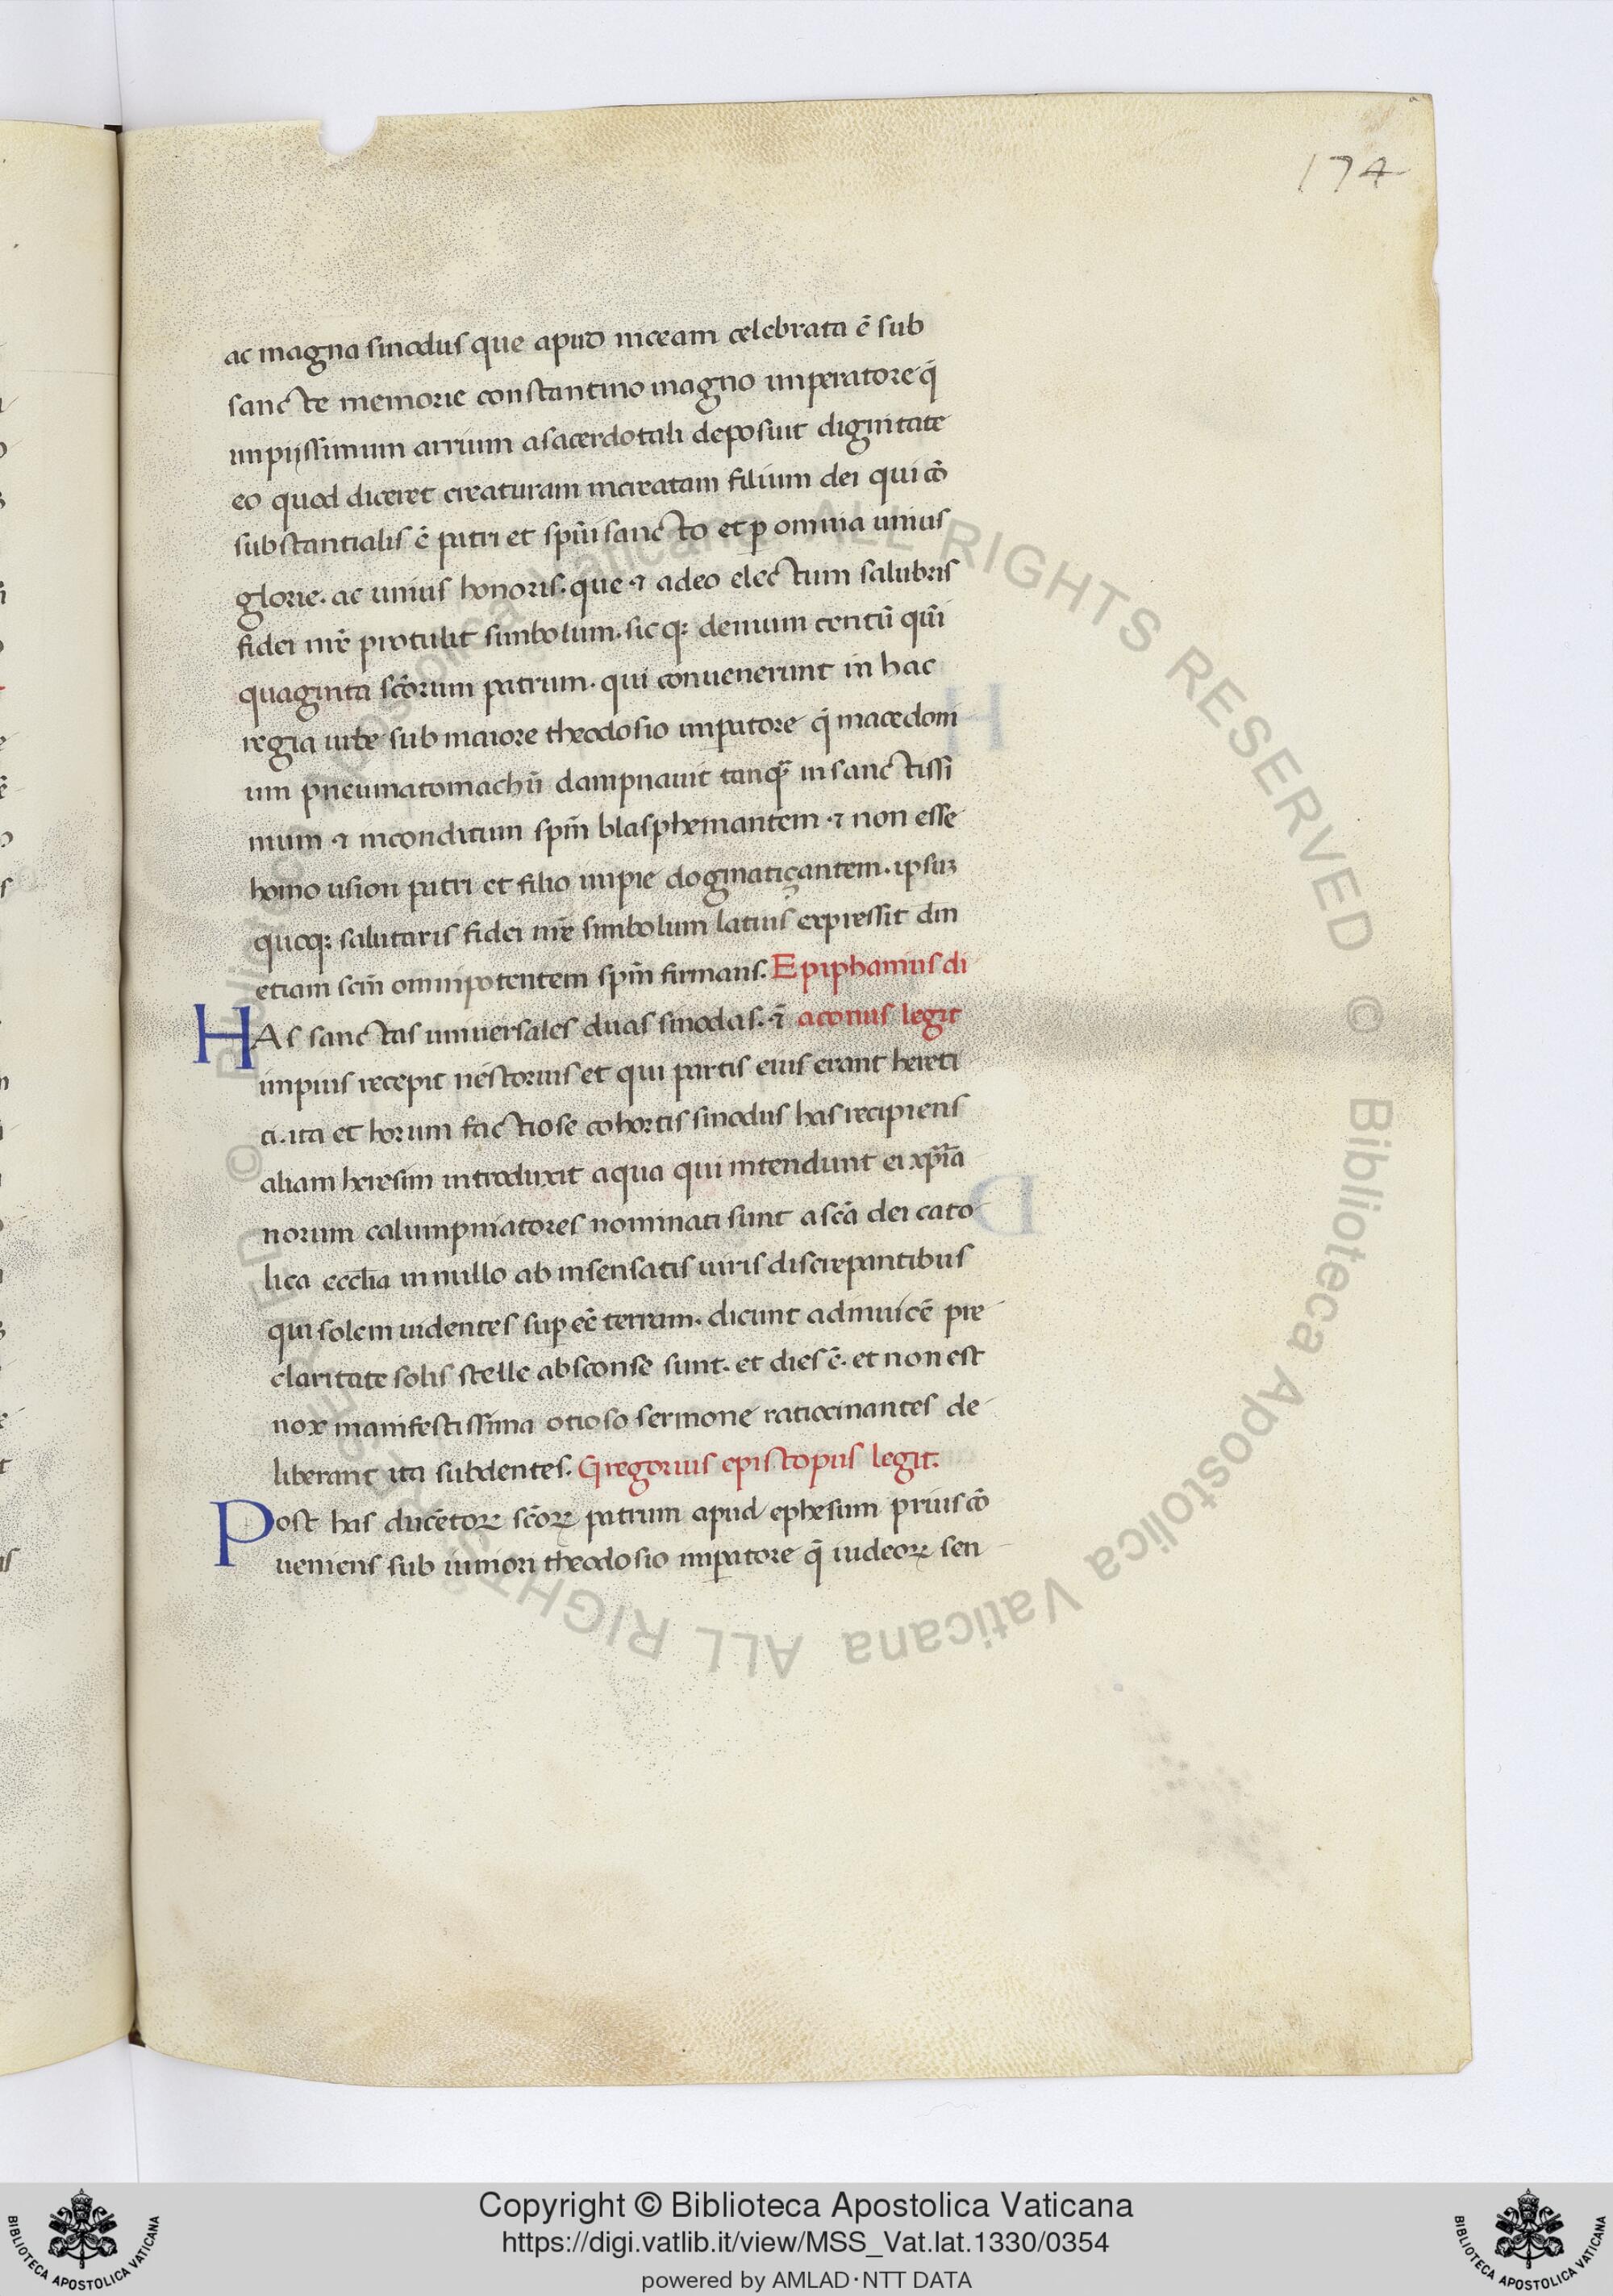 174
ac magna sinodus que apud niceam celebrata ē sub
sancte memorie constantino magno imperatore q̄
impijssimum arrium asacerdotali deposuit dignitate
eo quod diceret creaturam increatam filium dei qui cō
substantialis ē patri et spūi sancto et ꝑ omnia unius
glorie. ac unius honoris. que ⁊ adeo electum salubris
fidei nrē protulit simbolum. sicqꝫ demum centū quī
quaginta scōrum patrum. qui conuenerunt in hac
regia urbe sub maiore theodosio impatore q̄ macedoni
um pneumatomachū dampnauit tanq̄ in sanctissi
mum ⁊ inconditum spm̄ blasphemantem ⁊ non esse
homo usion patri et filio impie dogmatiçantem. ipsuꝫ
quoqꝫ salutaris fidei nrē simbolum latius expressit din
etiam scm̄ omnipotentem spm̄ firmans. Epiphanius di
HAs sanctas uniuersales duas sinodas. ⁊̄ aconus legit
impius recepit nestorius et qui partis eius erant hereti
ci. ita et horum factiose cohortis sinodus has recipiens
aliam heresim introduxit aqua qui intendunt ei xp̄ria
norum calumpniatores nominati sunt a scā dei cato
lica ecclia in nullo ab insensatis uiris discrepantibus
qui solem uidentes suꝑ eē terram. dicunt adinuicē pre
claritate solis stelle absconse sunt. et dies ē. et non est
nox manifestissima otioso sermone ratiocinantes de
liberant ita subdentes. Gregorius episcopus legit.
Post has ducētoꝝ scōꝝ patrum apud ephesum prius cō
ueniens sub iuniori theodosio impatore q̄ iudeoꝝ sen
© Biblioteca Apostolica Vaticana ALL RIGHTS RESERVED © Biblioteca Apostolica Vaticana ALL RIGHTS RESERVED
Copyright © Biblioteca Apostolica Vaticana
https://digi.vatlib.it/view/MSS_Vat.lat.1330/0354
powered by AMLAD·NTT DATA
BIBLIOTECA APOSTOLICA VATICANA
BIBLIOTECA APOSTOLICA VATICANA